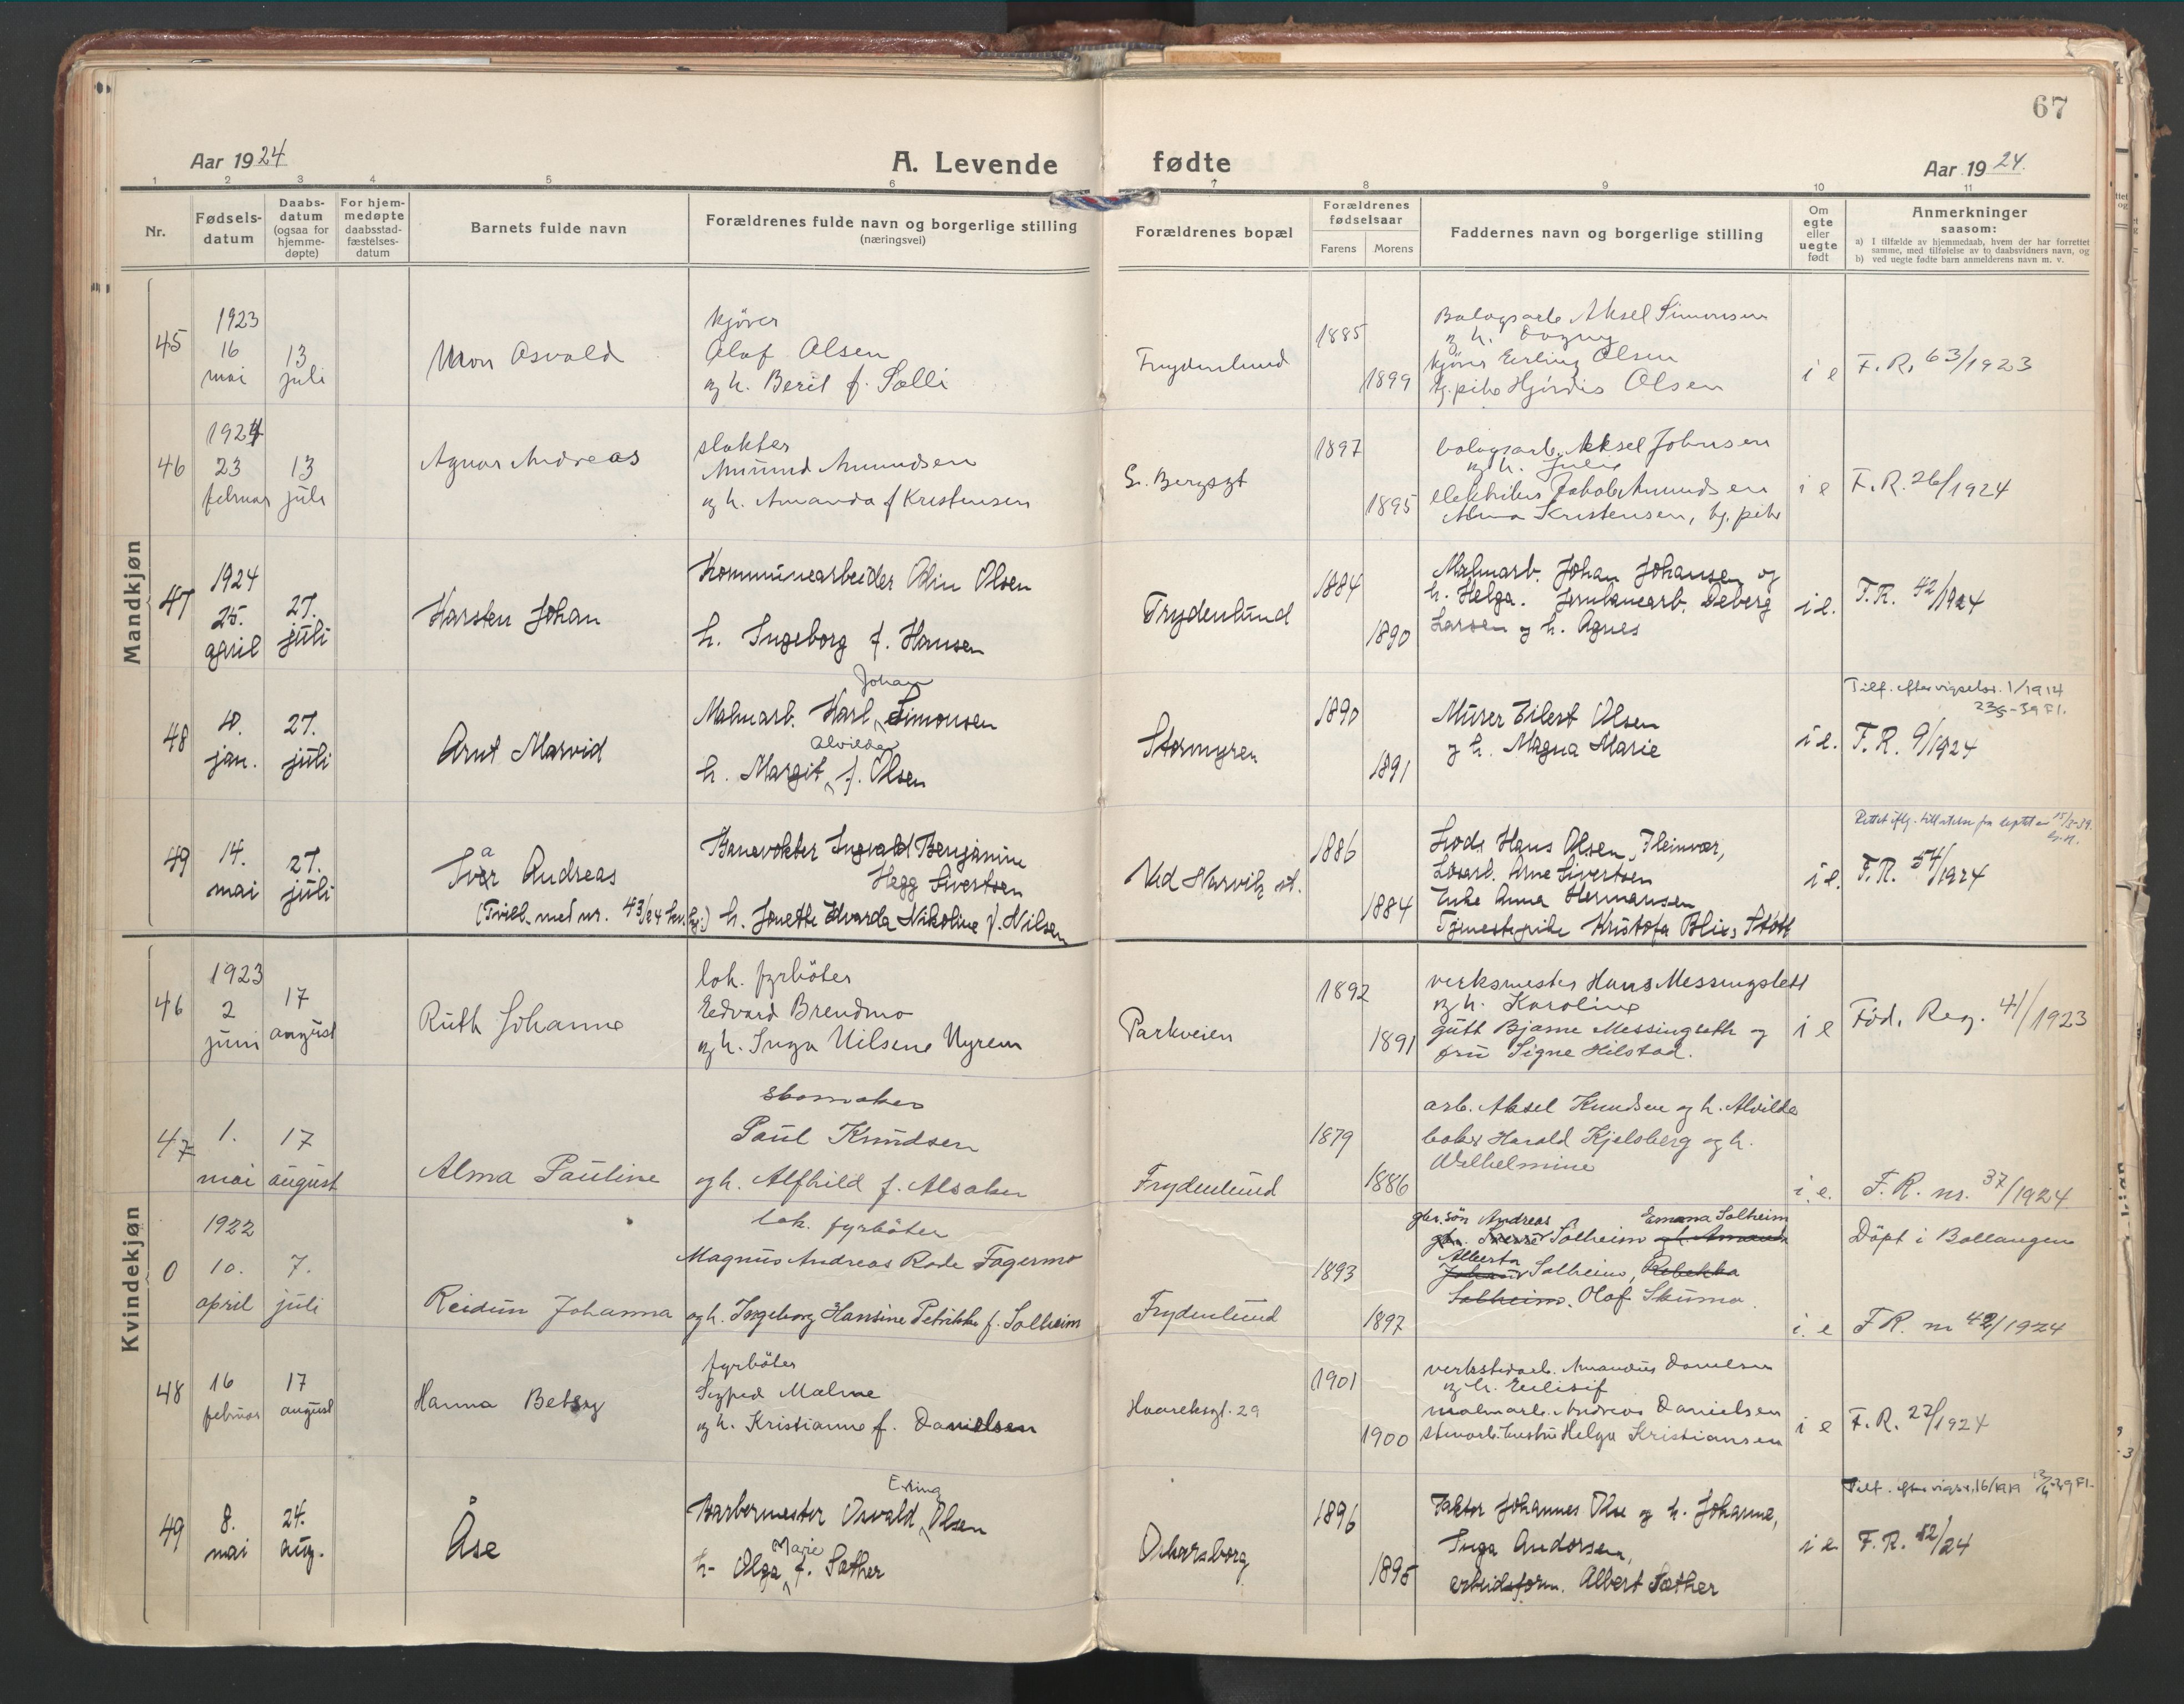 67
Aar 1924
A. Levende fødte
Aar 1924.
1 2 3 4 5 6 7 8 9 10 11
Nr.
Fødsels-
datum
Daabs-
datum
(ogsaa for
hjemme-
døpte)
For hjem-
medøpte
daabsstad-
fæstelses-
datum
Barnets fulde navn
Forældrenes fulde navn og borgerlige stilling
(næringsvei)
Forældrenes bopæl
Forældrenes
fødselsaar
Farens Morens
Faddernes navn og borgerlige stilling
Om
egte
eller
uegte
født
Anmerkninger
saasom:
a) I tilfælde av hjemmedaab, hvem der har forrettet
samme, med tilføielse av to daabsvidners navn, og
b) ved uegte fødte barn anmelderens navn m. v.
Mandkjøn
45
1923
16
mai
13
juli
Osvald
kjører
Olaf Olsen
og h. Berit f. Solli
Frydenlund
1885
1899
Aksel Simonsen
og h. Dagny
kjører Erling Olsen
tj.pike Hjørdis Olsen
i e
F. R. 63/1923
46
1924
23
februar
13
juli
Agnar Andreas
slakter
Amund Amundsen
og h. Amanda f Kristensen
1897
1895
Aksel Johnsen
og h. Julie
Jakob Amundsen
Alma Kristensen, tj. pike
i e
F. R. 26/1924
47
1924
25.
april
27.
juli
Karsten Johan
Kommunearbeider Odin Olsen
h. Ingeborg f. Hansen
Frydenlund
1884
1890
Malmarb. Johan Johansen og
h. Helga. Jernbanearb. Deberg
Larsen og h. Agnes
i e.
F. R. 42/1924
48
jan.
27.
juli
Arnt Marvid
Johan
Malmarb. Karl Simonsen
Alvilde
h. Margit f. Olsen
Stormyren
1890
1891
Murer Eilert Olsen
og h. Magna Marie
i e.
Tilf. efter vigselsr. 1/1914
23/5-39 Fl.
F. R. 9/1924
49
14.
mai
27.
juli
a
Ivar Andreas
(Tvill. med nr. 43/24 kv. kj.)
Banevokter Ingvald Benjamin
Hegg Sivertsen
h. Jonette Edvarda Nikoline f. Nilsen
Ved Narvik st.
1886
1884
Lods Hans Olsen, Fleinvær,
Løsarb. Arne Sivertsen
Enke Anna Hermansen
Tjenestepike Kristofa Blix, Støtt
i e.
F. R. 54/1924
Kvindekjøn
46
1923
2
juni
17
august
Ruth Johanne
lok. fyrbøter
Edvard Brendmo
og h. Inga Nilsene Nyrem
Parkveien
1892
1891
verksmester Hans Messingslett
og h. Karoline
gutt Bjarne Messingseth og
fru Signe Hilstad.
i e
Fød. Reg. 41/1923
47
1.
mai
17
august
Alma Pauline
skomaker
Paul Knudsen
og h. Alfhild f. Alsaker
Frydenlund
1879
1886
arb. Aksel Knudsen og h. Alvilde
baker Harald Kjelsberg og h.
Wilhelmine
i. e.
F. R. nr. 37/1924
0
1922
10.
april
7.
juli
Reidun Johanna
lok. fyrbøter
Magnus Andreas Rode Fagermo
og h. Ingeborg Hansine Petrikke f. Solheim
Frydenlund
1893
1897
gbr. søn Andreas Emma Solheim
Solheim
Alberta
Solheim, Rebekka
Solheim. Olaf Skumo.
i. e
Døpt i Ballangen
F R. nr 42/1924
48
16
februar
17
august
Hanna Betsy
fyrbøter
Sigfred Malme
og h. Kristianne f. Danielsen
Haareksgt. 29
1901
1900
verkstedarb. Amandus Danielsen
og h. Eilisif
malmarb. Andreas Danielsen
Helga Kristiansen
i e
F. R. 27/1924
49
8.
mai
24.
aug.
Åse
Barbermester Osvald Olsen
Marie
h. Olga f. Sæther
Oskarsborg
1896
1895
Faktor Johannes Olse og h. Johanne,
Inga Andorsen,
arbeidsform. Albert Sæther
i e
F. R. 52/24